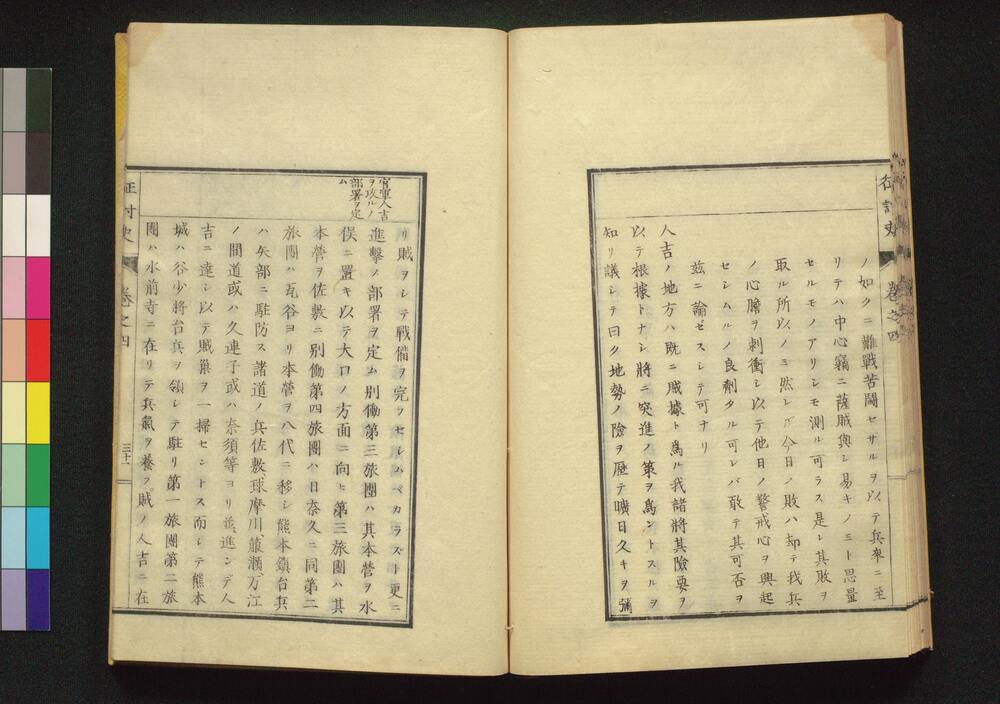 征討史 卷之四
ノ如クニ難戰苦鬪セサルヲ以テ兵卒ニ至
リテハ中心竊ニ薩賊與シ易キノミト思量
セルモノアリシモ測ル可ラス是レ其敗ヲ
取ル所以ノミ然レ𪜈今日ノ敗ハ却テ我兵
ノ心膽ヲ刺衝シ以テ他日ノ警戒心ヲ興起
セシムルノ良劑タル可レバ敢テ其可否ヲ
玆ニ論ゼスシテ可ナリ
人吉ノ地方ハ既ニ賊據ト爲ル我諸將其險要ヲ
以テ根據トナシ將ニ突進ノ策ヲ爲ントスルヲ
知リ議シテ曰ク地勢ノ險ヲ歷テ曠日久キヲ彌
官軍人吉
ヲ攻ルノ
部署ヲ定
ム
リ賊ヲシテ戰備ヲ完フセシムベカラズト更ニ
進擊ノ部署ヲ定ム別働第三旅團ハ其本營ヲ水
俣ニ置キ以テ大口ノ方面ニ向ヒ第三旅團ハ其
本營ヲ佐敷ニ別働第四旅團ハ日奈久ニ同第二
旅團ハ瓦谷ヨリ本營ヲ八代ニ移シ熊本鎭台兵
ハ矢部ニ駐防ス諸道ノ兵佐敷球摩川箙瀨万江
ノ間道或ハ久連子或ハ奈須等ヨリ並進ンデ人
吉ニ達シ以テ賊巢ヲ一掃セントス而シテ熊本
城ハ谷少將台兵ヲ領シテ駐リ第一旅團第二旅
團ハ水前寺ニ在リテ兵氣ヲ養フ賊ノ人吉ニ在
征討史 卷之四 三十一